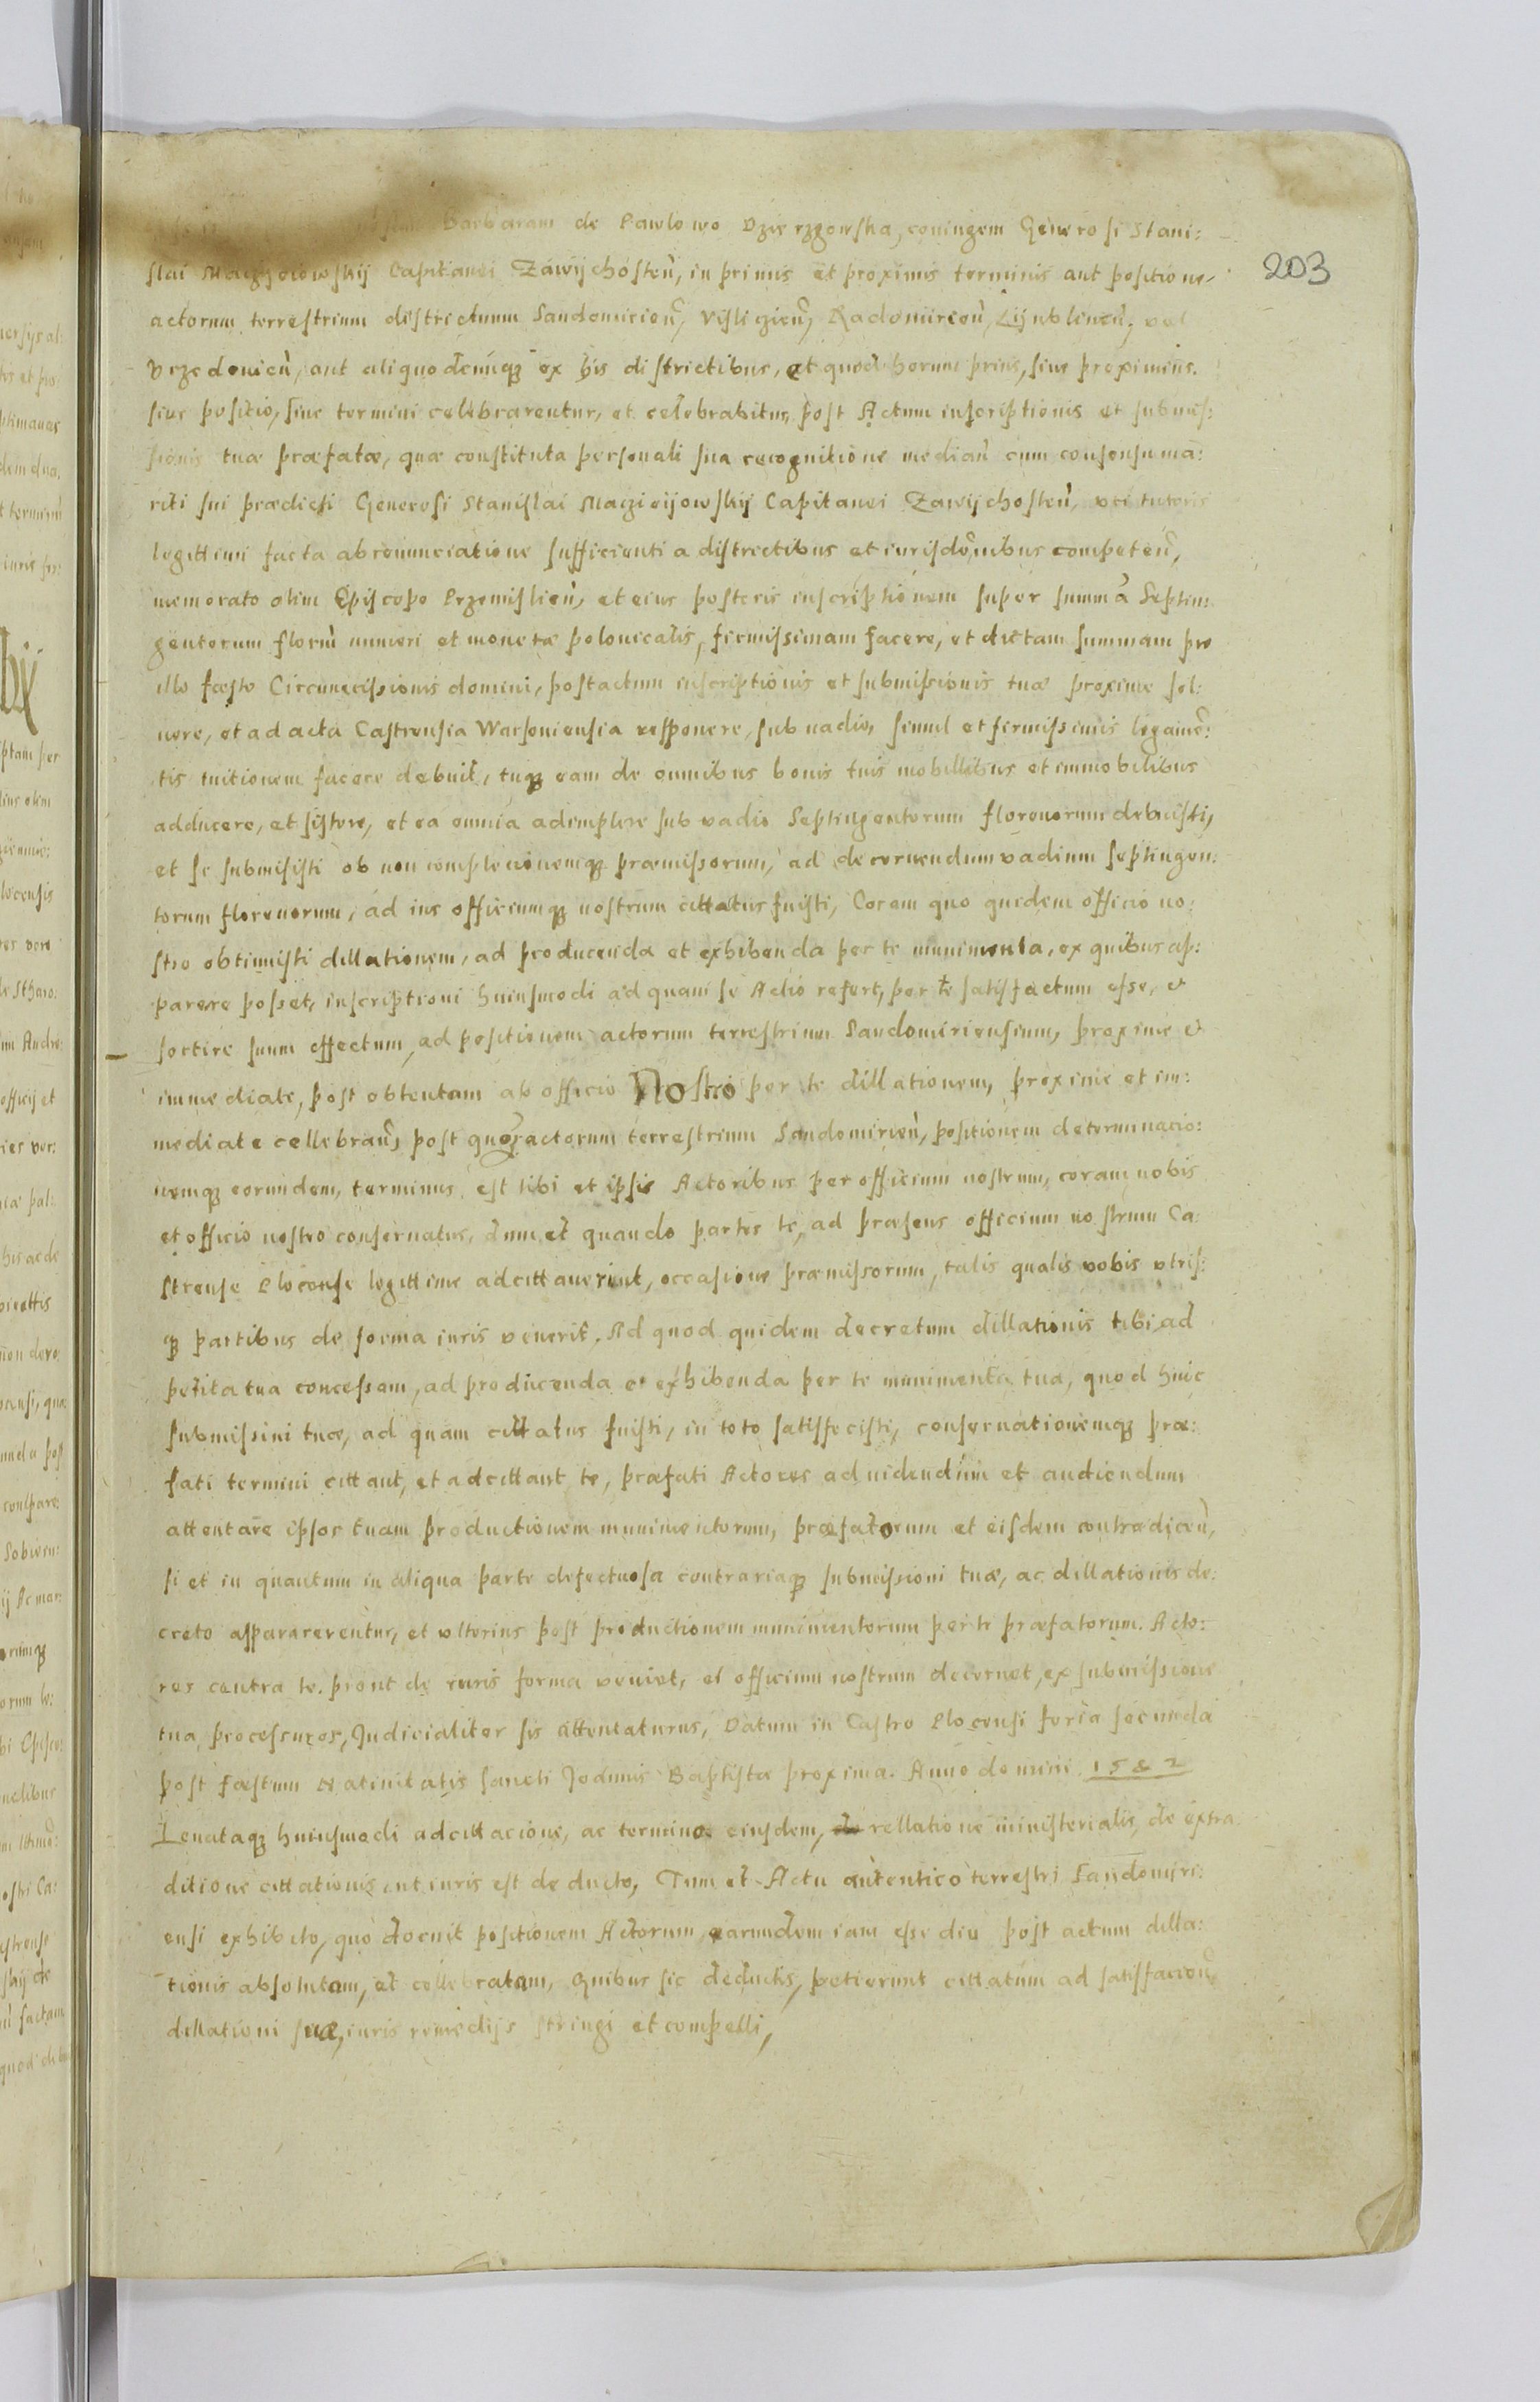 Barbaram de Pawlowo Dzierzgowska, coniugem Generosi Stani:
slai Maczieiowskij Capitanei Zawijchosteñ, in primis et proximis terminis aut positione
203
actorum terrestrium districtuum Sandomirieñ, Visliczieñ, Radomirieñ, Lijublineñ, vel
Vrzedovieñ, aut aliquo demúqꝫ ex his districtibus, et quod horum prius, siue proximius.
siue positio, siue termini celebrarentur, et celebrabitur, post Actum inscriptionis et submis:
sionis tuæ præfatæ, quæ constituta personali sua recognitione mediañ cum consensu ma:
riti sui prædicti Generosi Stanislai Maczieijowskij Capitanei Zawijchosteñ, vti tutoris
legittimi facta abrenunciatione sufficienti a districtibus et iurisdõnibus competeñ,
memorato olim Episcopo Przemislieñ, et eius posteris inscriptionem super summã Septin:
gentorum florũ numeri et monetæ polonicalis, firmissimam facere, et dictam summam pro
illo fæsto Circumcissionis domini, post actum inscriptionis et submissionis tuæ proxime sol:
uere, et ad acta Castrensia Warsouiensia repponere, sub uadio, simul et firmissimis ligamẽ:
tis tuitionem facere debuit, tuqꝫ eam de omnibus bonis tuis mobillibus et immobilibus
adducere, et sistere, et ea omnia adimplere sub vadio Septingentorum florenorum debuisti,
et se submisisti ob non complecionemqꝫ præmissorum, ad decernendum vadium septingen:
torum florenorum, ad ius officiumqꝫ nostrum cittatus fuisti, Coram quo quidem officio no:
stro obtinuisti dillationem, ad producenda et exhibenda per te munimenta, ex quibus ap:
parere posset, inscriptioni huiusmodi ad quam se Actio refert, per te satisfactum esse, et
sortire suum effectum, ad positionem actorum terrestrium Sandomiriensium, proxime et
immediate, post obtentam ab officio Nostro per te dillationem, proxime et im:
mediate cellebrañ, post quor̃ actorum terrestrium Sandomirieñ, positionem determinacio:
nemqꝫ eorundem, terminus est tibi et ipsis Actoribus per officium nostrum, coram nobis
et officio nostro conseruatus, dum et quando partes te, ad præsens officium nostrum Ca:
strense Plocense legittime adcittauerint, occasione præmissorum, talis qualis vobis vtris:
qꝫ partibus de forma iuris venerit. Ad quod quidem decretum dillationis tibi ad
petita tua concessam, ad producenda et exhibenda per te munimenta tua, quod huic
submissini tuæ, ad quam cittatus fuisti, in toto satisfecisti, conseruationemqꝫ præ:
fati termini cittant, et adcittant te, præfati Actores ad uidendum et audiendum
attentare ipsos tuam productionem munimentorum, præfatorum et eisdem contradiceñ,
si et in quantum in aliqua parte defectuosa contrariaqꝫ submissioni tuæ, ac dillationis de:
creto apparererentur, et vlterius post productionem munimentorum per te præfatorum. Acto:
res contra te. prout de iuris forma veniet, et officium nostrum decernet, ex submissione
tua processuros, Judicialiter sis attentaturus, Datum in Castro Plocensi feria secunda
post fæstum Natiuitatis sancti Joannis Baptistæ proxima. Anno domini 1582
Leuataqꝫ huiusmodi adcittacione, ac termino eiusdem, rellatione ministerialis, de extra
ditione cittationis, vt iuris est deducto, Tum et Actu autentico terrestri Sandomiri:
ensi exhibito, quo docuit positionem Actorum earundem iam esse diu post actum dilla:
tionis absolutam, et cellebratam, Quibus sic deductis, petierunt cittatum ad satisfacioñ
dillationi suæ, iuris remedijs stringi et compelli,